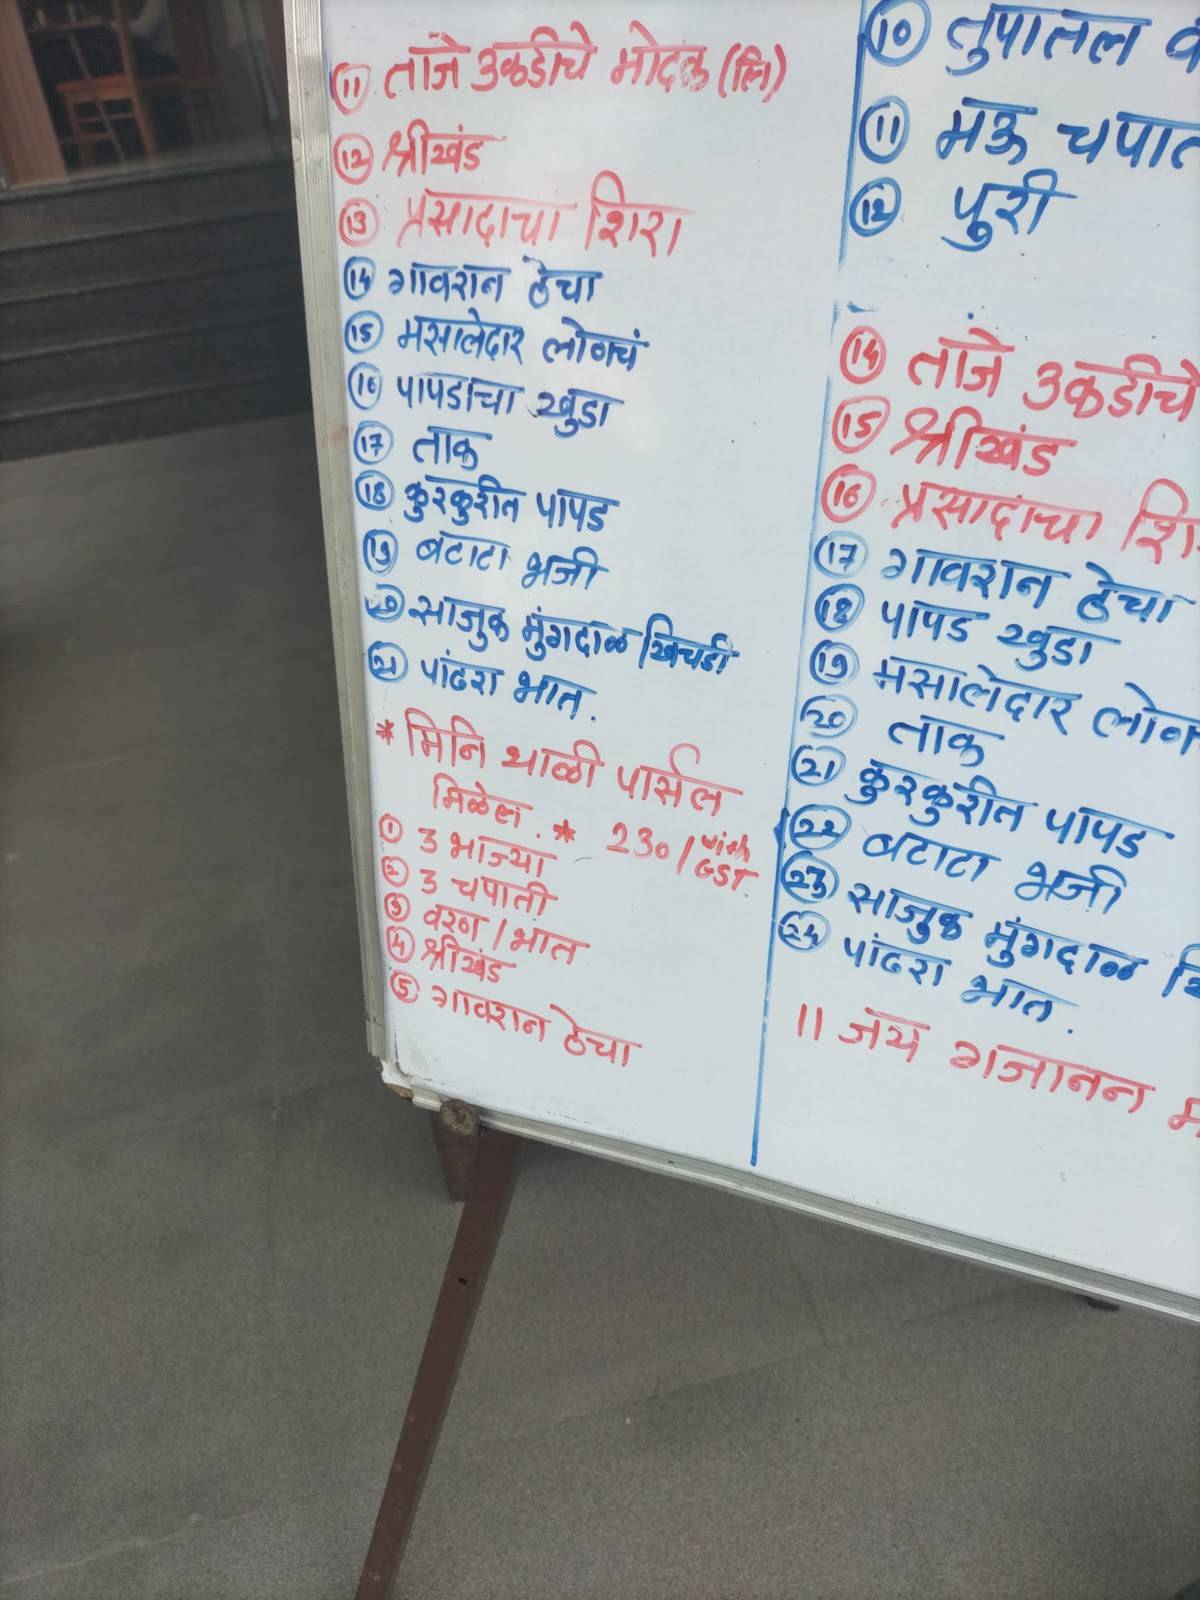 11 ताजे उकडीचे मोदक (लि)
12 श्रीखंड
13 प्रसादाचा शिरा
14 गावरान ठेचा
15 मसालेदार लोणचं
16 पापडाचा खुडा
17 ताक
18 कुरकुरीत पापड
19 बटाटा भजी
20 साजुक मुंगदाळ खिचडी
21 पांढरा भात.
* मिनि थाळी पार्सल
मिळेल. * 230/ with GST
1 3 भाज्या
2 3 चपाती
3 वरण / भात
4 श्रीखंड
5 गावरान ठेचा
10 तुपातल
11 मऊ
12 पुरी
14 ताजे उकडीचे
15 श्रीखंड
16 प्रसादाचा
17 गावरान ठेचा
18 पापड खुडा
19 मसालेदार
20 ताक
21 कुरकुरीत पापड
22 बटाटा भजी
23 साजुक मुंगदाळ
24 पांढरा भात.
॥ जय गजानन